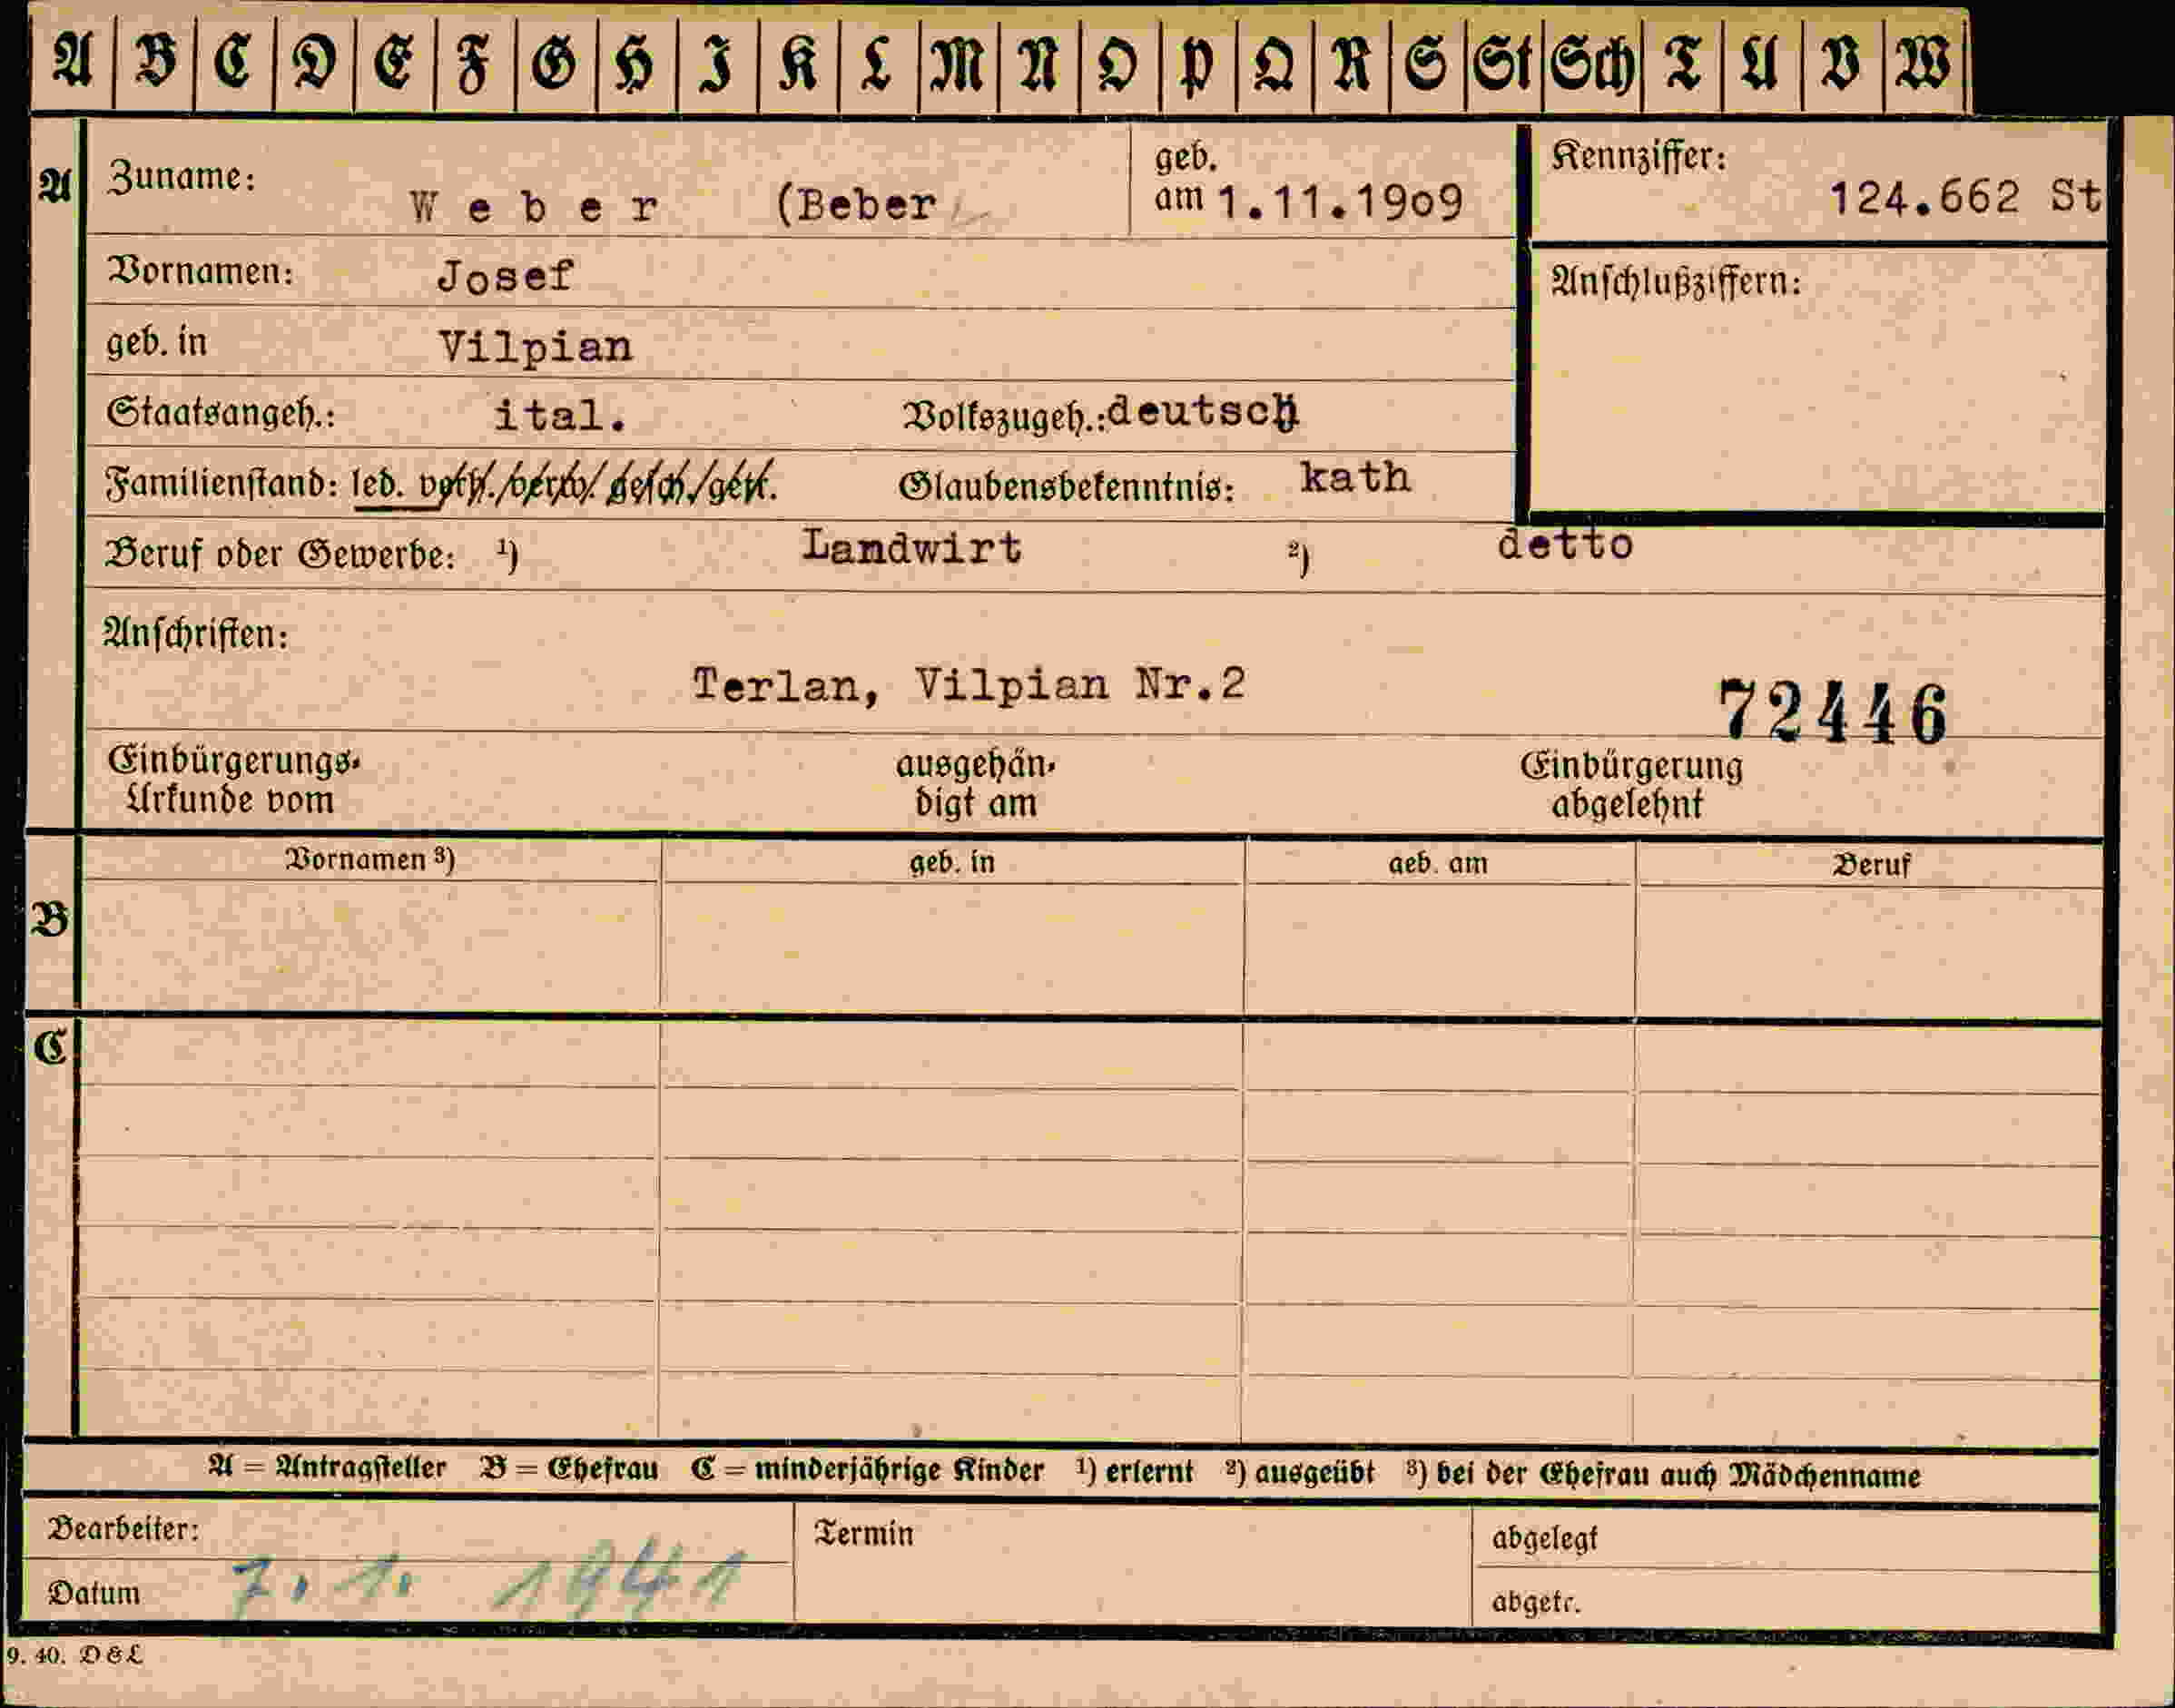 A B C D E F G H I K L M N O P Q R S St Sch T U V W
A Zuname: Weber (Beber geb. am 1.11.1909 Kennziffer: 124.662 St
Vornamen: Josef Anschlußziffern:
geb. in Vilpian
Staatsangeh.: ital. Volkszugeh.: deutsch
Familienstand: led. verh./verw./gesch./getr. Glaubensbekenntnis: kath
Beruf oder Gewerbe: 1) Landwirt 2) detto
Anschriften:
Terlan, Vilpian Nr.2 72446
Einbürgerungs- ausgehän- Einbürgerung
Urkunde vom digt am abgelehnt
Vornamen 3) geb. in geb. am Beruf
B
C
A = Antragsteller B = Ehefrau C = minderjährige Kinder 1) erlernt 2) ausgeübt 3) bei der Ehefrau auch Mädchenname
Bearbeiter: Termin abgelegt
Datum 7. 1. 1941 abgetr.
9. 40. D&L